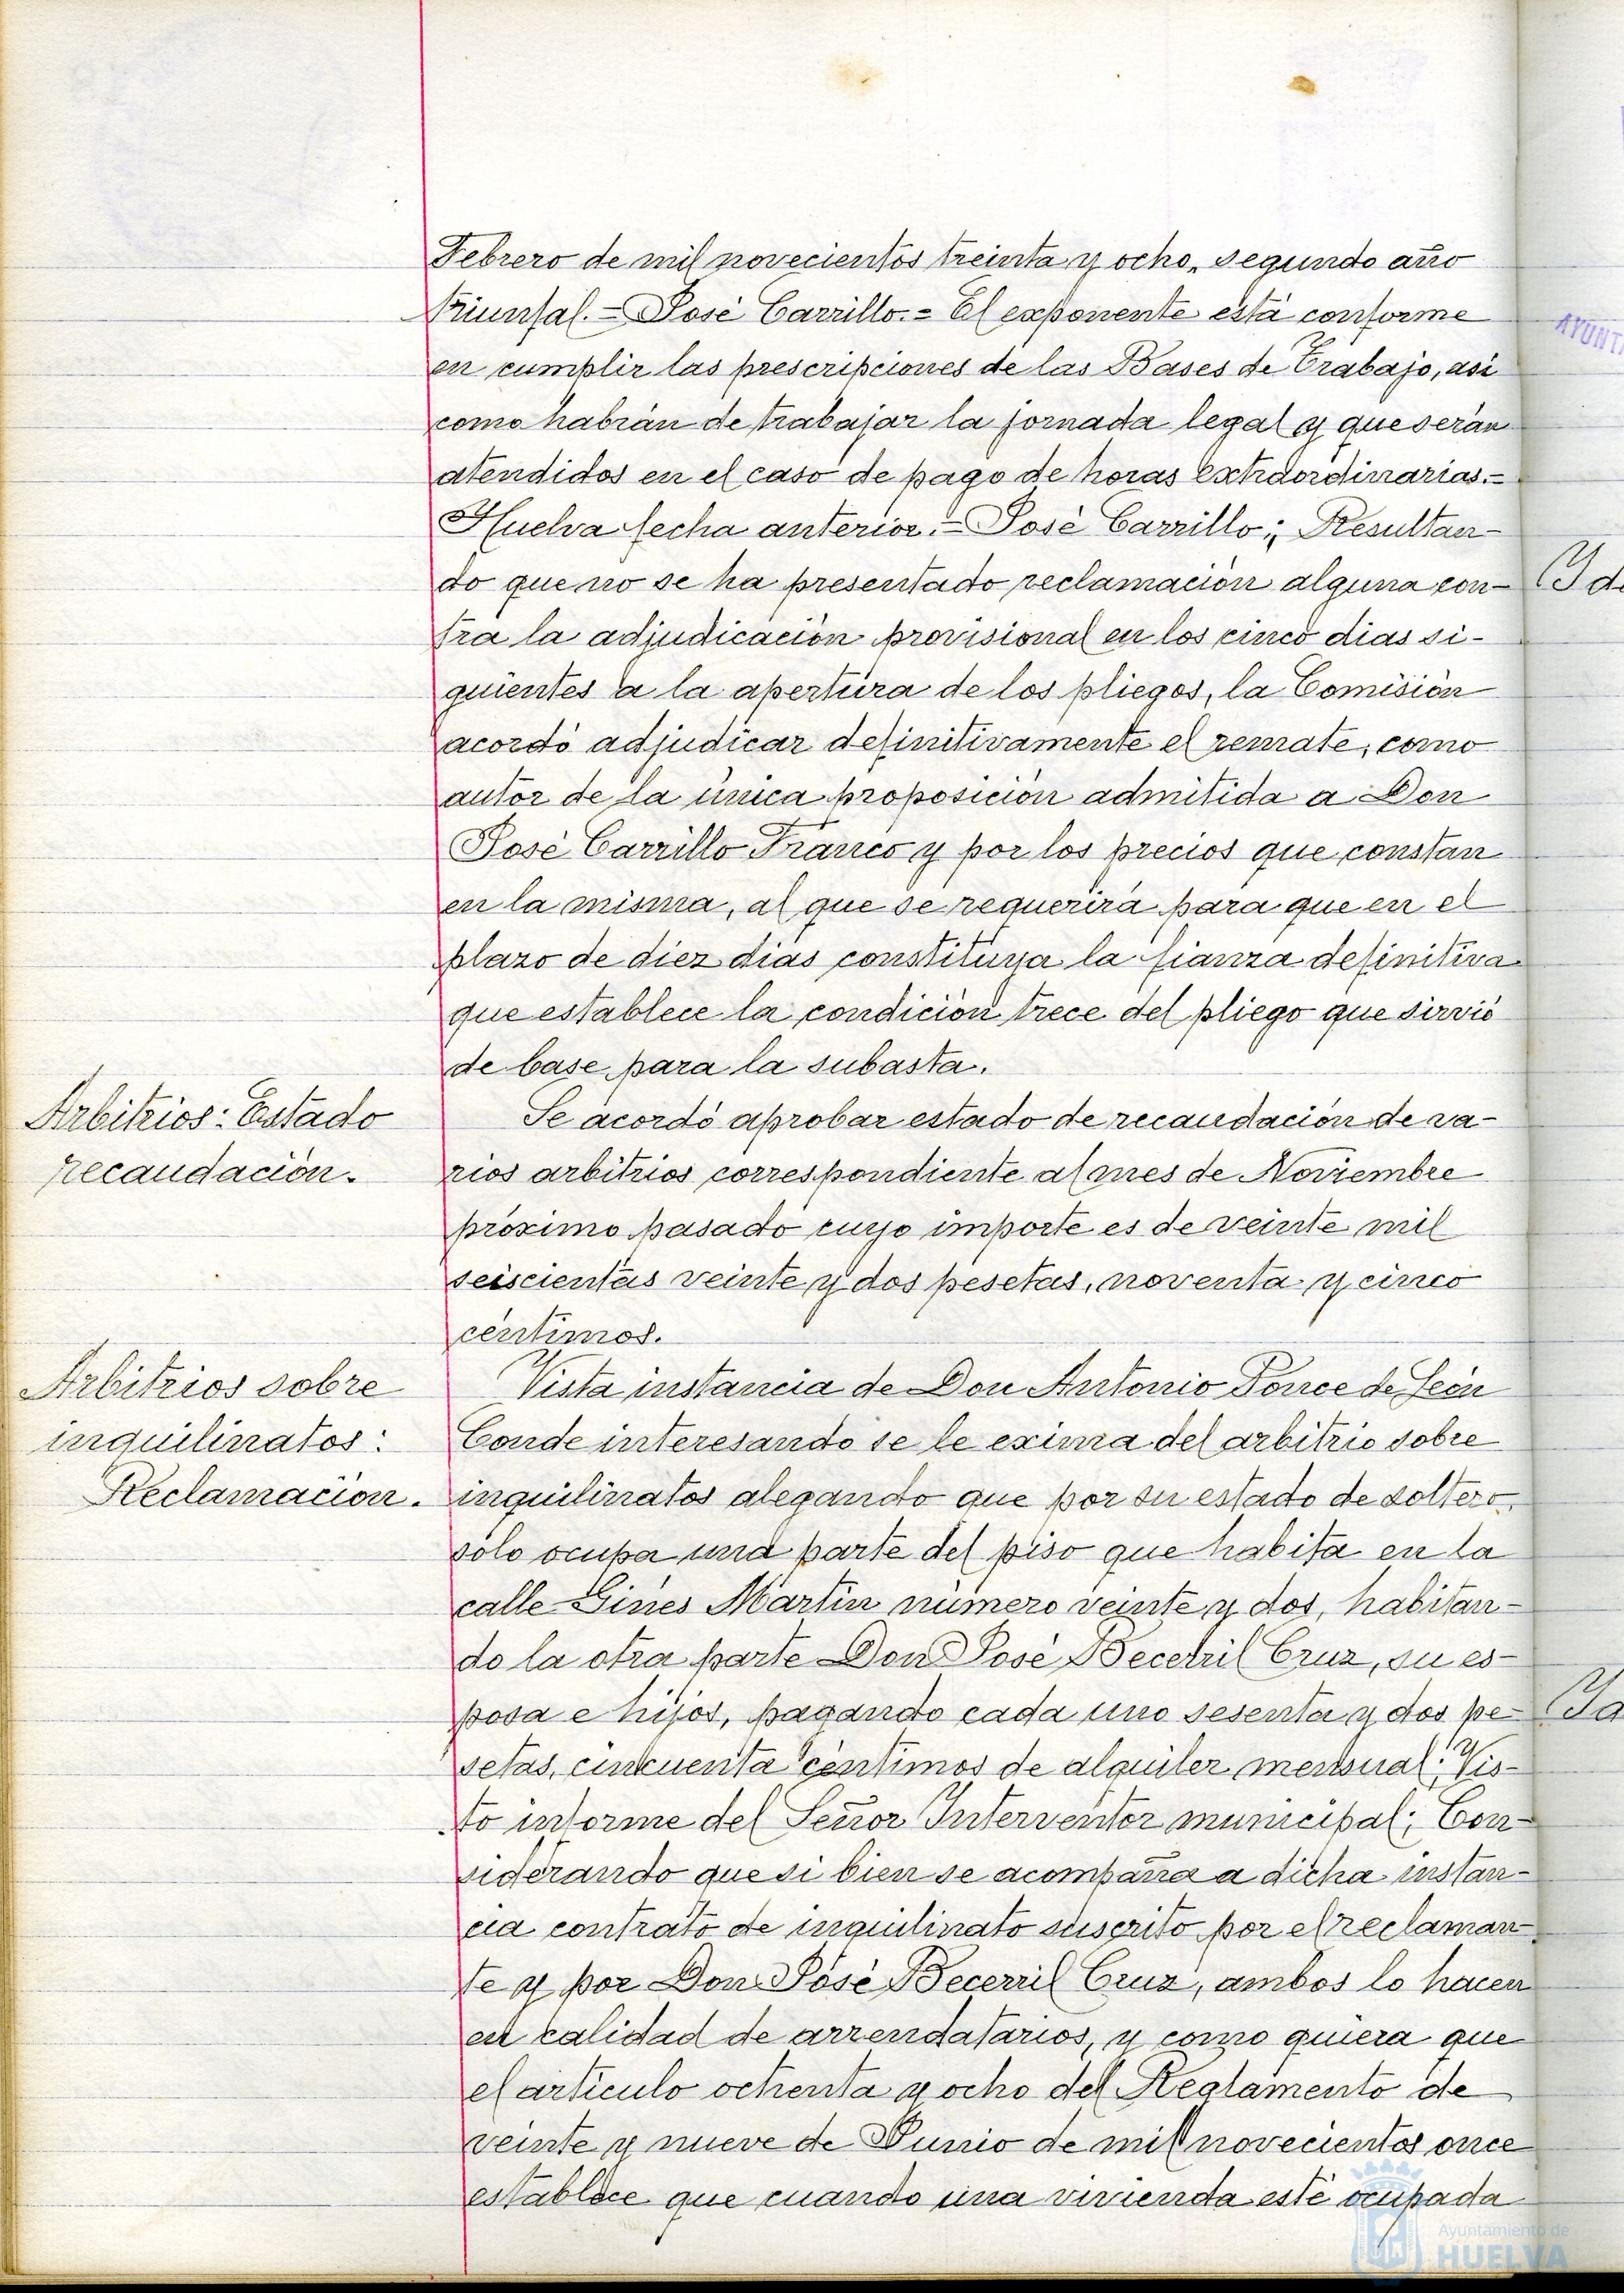 Febrero de mil novecientos treinta y ocho, segundo año
triunfal.= José Carrillo.= El exponente está conforme
en cumplir las prescripciones de las Bases de Trabajo, asi
como habrán de trabajar la jornada legal y que serán
atendidos en el caso de pago de horas extraordinarias.=
Huelva fecha anterior.= José Carrillo; Resultan-
do que no se ha presentado reclamación alguna con-
tra la adjudicación provisional en los cinco dias si-
guientes a la apertura de los pliegos, la Comisión
acordó adjudicar definitivamente el remate, como
autor de la única proposición admitida a Don
José Carrillo Franco y por los precios que constan
en la misma, al que se requerirá para que en el
plazo de diez dias constituya la fianza definitiva
que establece la condición trece del pliego que sirvió
de base para la subasta.
Arbitrios: Estado
recaudación.
Se acordó aprobar estado de recaudación de va-
rios arbitrios correspondiente al mes de Noviembre
próximo pasado cuyo importe es de veinte mil
seiscientas veinte y dos pesetas, noventa y cinco
céntimos.
Arbitrios sobre
inquilinatos:
Reclamación.
Vista instancia de Don Antonio Ponce de León
Conde interesando se le exima del arbitrio sobre
inquilinatos alegando que por su estado de soltero,
sólo ocupa una parte del piso que habita en la
calle Ginés Martín número veinte y dos, habitan-
do la otra parte Don José Becerril Cruz, su es-
posa e hijos, pagando cada uno sesenta y dos pe-
setas, cincuenta céntimos de alquiler mensual; Vis-
to informe del Señor Interventor municipal; Con-
siderando que si bien se acompaña a dicha instan-
cia contrato de inquilinato suscrito por el reclaman-
te y por Don José Becerril Cruz, ambos lo hacen
en calidad de arrendatarios, y como quiera que
el articulo ochenta y ocho del Reglamento de
veinte y nueve de Junio de mil novecientos once
establece que cuando una vivienda esté ocupada
AYUNT
Ayuntamiento de
HUELVA